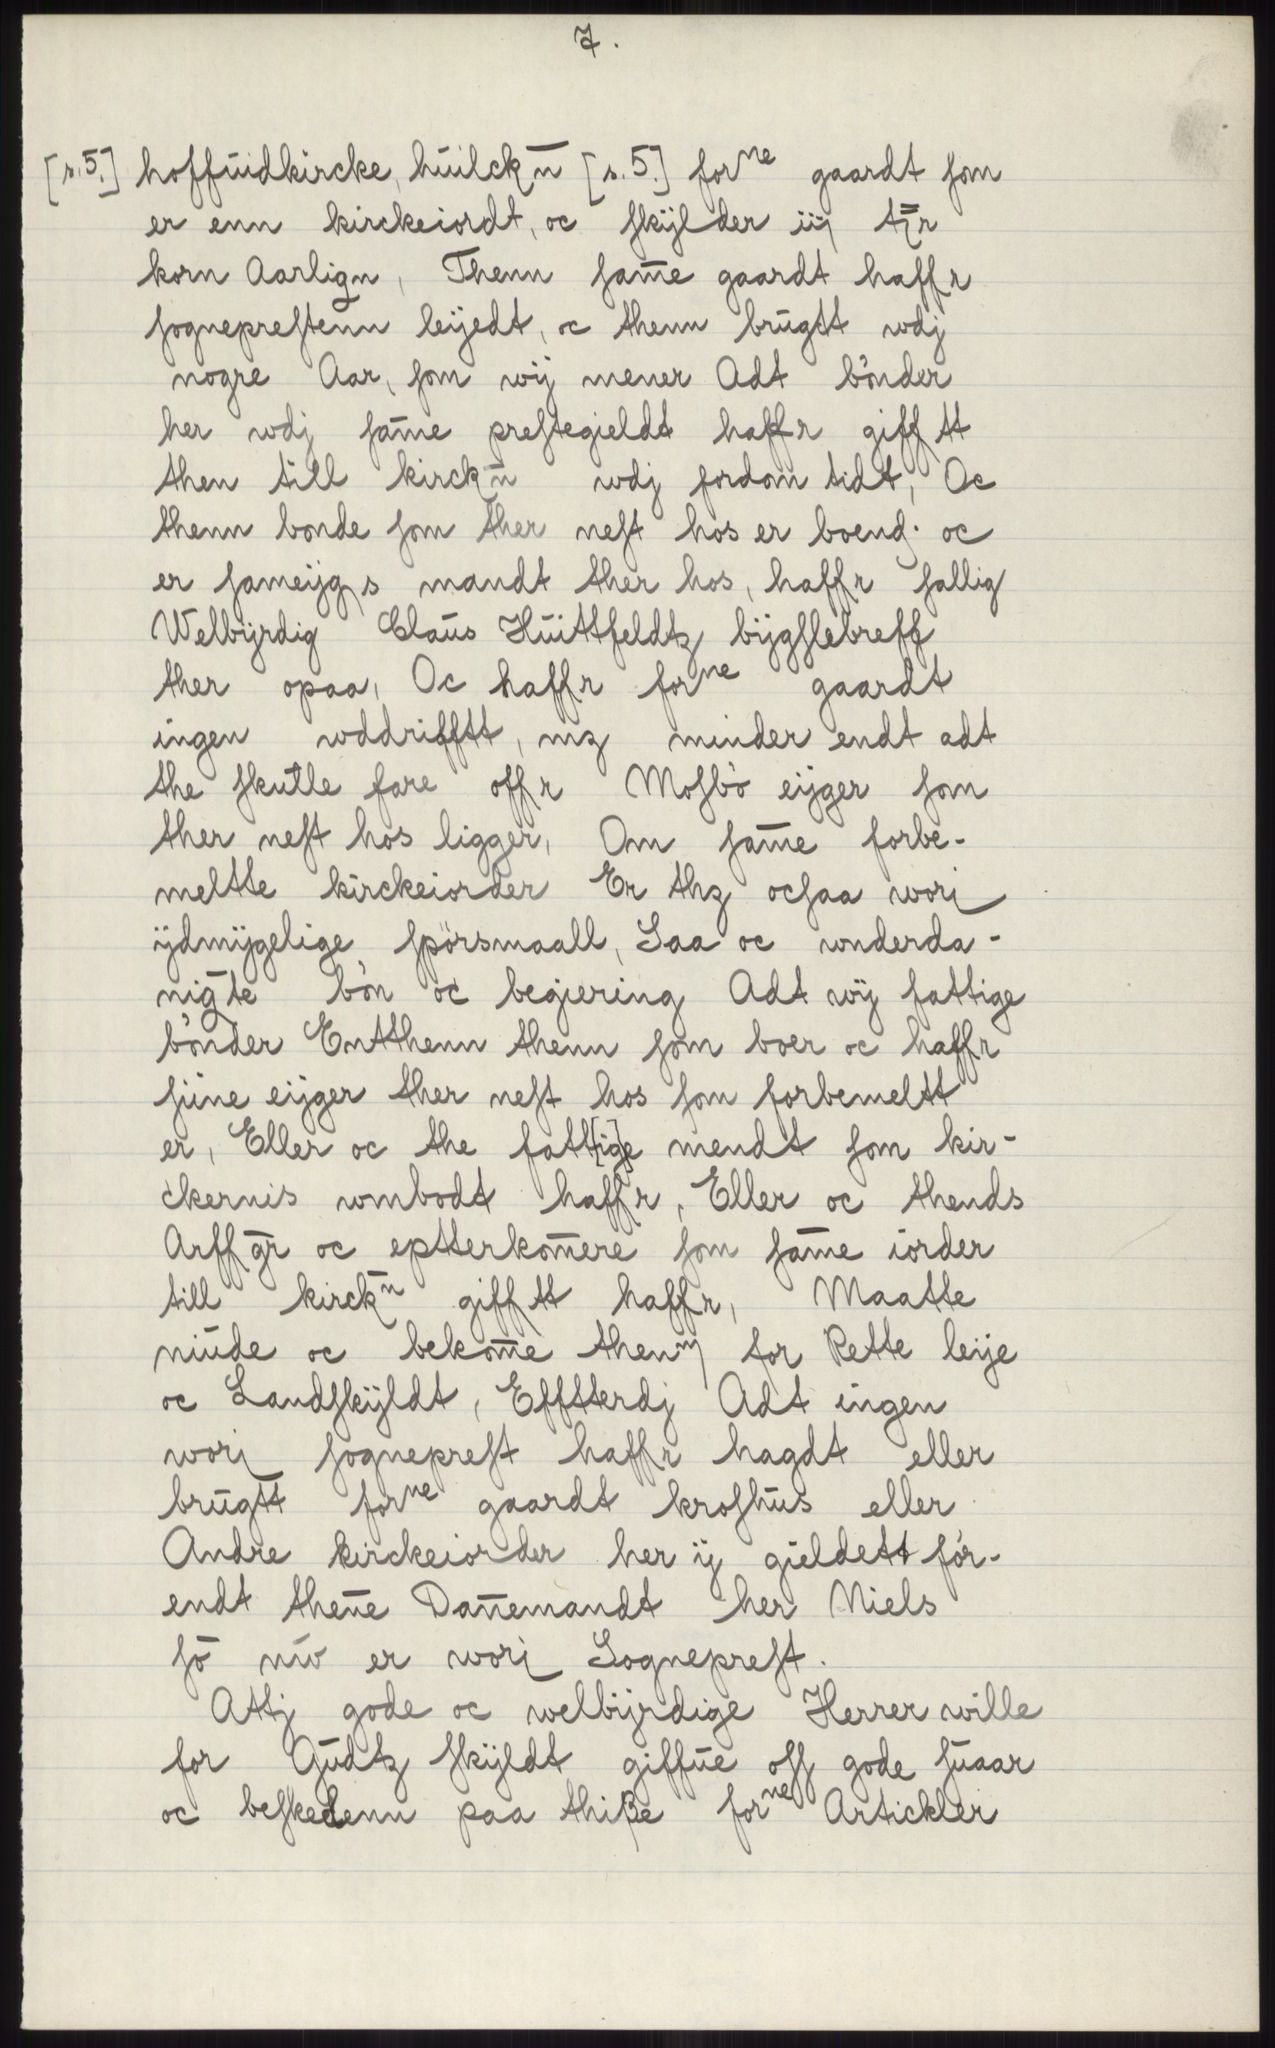 7.
[s.5.] hoffuidkircke, huilckn̄ [s.5.] forne gaardt som
er enn kirckeiordt, oc skÿlder iij t̄r
korn Aarlign, Thenn sam̄e gaardt haffr
sogneprestenn leÿedt, oc thenn brugtt wdj
nogre Aar, som wÿ mener Adt bönder
her wdj sam̄e prestegieldt haffr gifftt
then till kirckn̄ wdj fordom tidt, Oc
thenn bonde som ther nest hos er boend. oc
er sameÿgs mandt ther hos, haffr sallig
Welbÿrdig Claus Huittfeldtz bÿgslebreff
ther opaa, Oc haffr forne gaardt
ingen wddrifftt, mz minder endt adt
the skulle fare offr Mosbö eÿger som
ther nest hos ligger, Om sam̄e forbe-
meltte kirckeiorder Er thz ocsaa worj
ÿdmÿgelige spörsmaall, Saa oc wnderda-
nigte bön oc begiering Adt wÿ fattige
bönder Entthenn thenn som boer oc haffr
siine eÿger ther nest hos som forbemeltt
er, Eller oc the fatt[ig]e mendt som kir-
ckernis wmbodt haffr, Eller oc thends
Arffgr̄ oc eptterkom̄ere som sam̄e iorder
till kirckn̄ gifftt haffr, Maatte
niude oc bekom̄e thenn for Rette leije
oc Landskÿldt, Effterdj Adt ingen
worj sogneprest haffr hagdt eller
brugtt forne gaardt kroshus eller
Andre kirckeiorder her ij gieldett för-
endt then̄e Dan̄emandt her Niels
sö nw er worj Sogneprest.
Attj gode oc welbÿrdige Herrer wille
for Gudtz skÿldt giffue oss gode suaar
oc beskedenn paa thiße forne Artickler